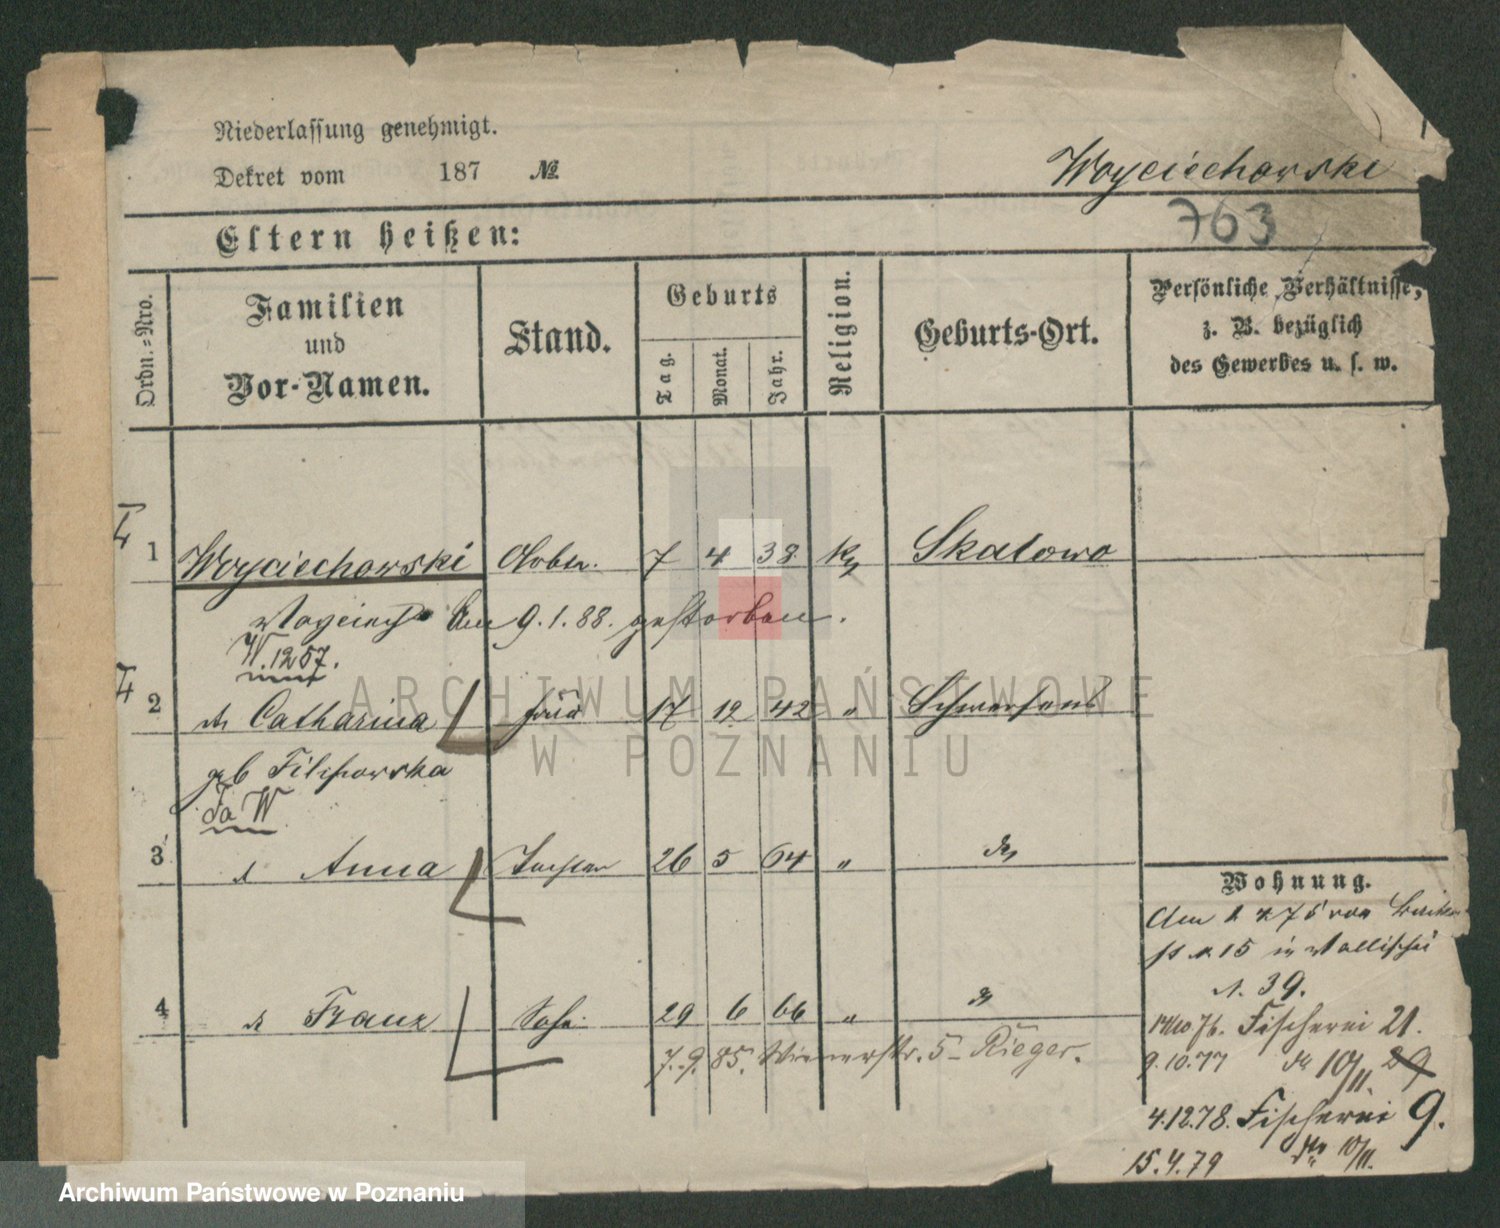 Niederlassung genehmigt.
Dekret vom 187 №
Woyciechowski
763
Eltern heißen:
Ordn.-Nro.
Familien
und
Vor-Namen.
Stand.
Geburts
Tag.
Monat.
Jahr.
Religion.
Geburts-Ort.
Persönliche Verhältnisse,
z. B. bezüglich
des Gewerbes u. s. w.
1 Woyciechowski Arbtr. 7 4 38 Skalowo
Am 9.1.88. gestorben.
W. 1257.
2 Catharina Frau 17 12 42 " Schwersenz
gb Filipowska
W
3 Anna Tochter 26 5 64 "
4 Franz Sohn 29 6 66 "
7.9.85. Wienerstr. 5 - Rieger.
Wohnung.
Am 75 von
15 in Wallischei
N. 39.
76. Fischerei 21.
9.10.77 10/II. 29
4.12.78. Fischerei 9.
15.4.79 10/II.
ARCHIWUM PAŃSTWOWE
W POZNANIU
Archiwum Państwowe w Poznaniu